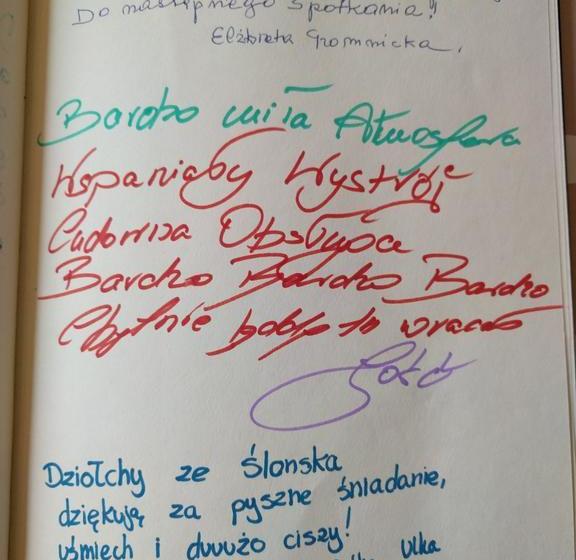 Do następnego spotkania!
Elżbieta Gromnicka.
Bardzo miła Atmosfera
Wspaniały Wystrój
Cudowna Obsługa
Bardzo Bardzo Bardzo
Chętnie będę tu wracać
Gość
Dziołchy ze Ślonska
dziękują za pyszne śniadanie,
uśmiech i duuużo ciszy!
ulka